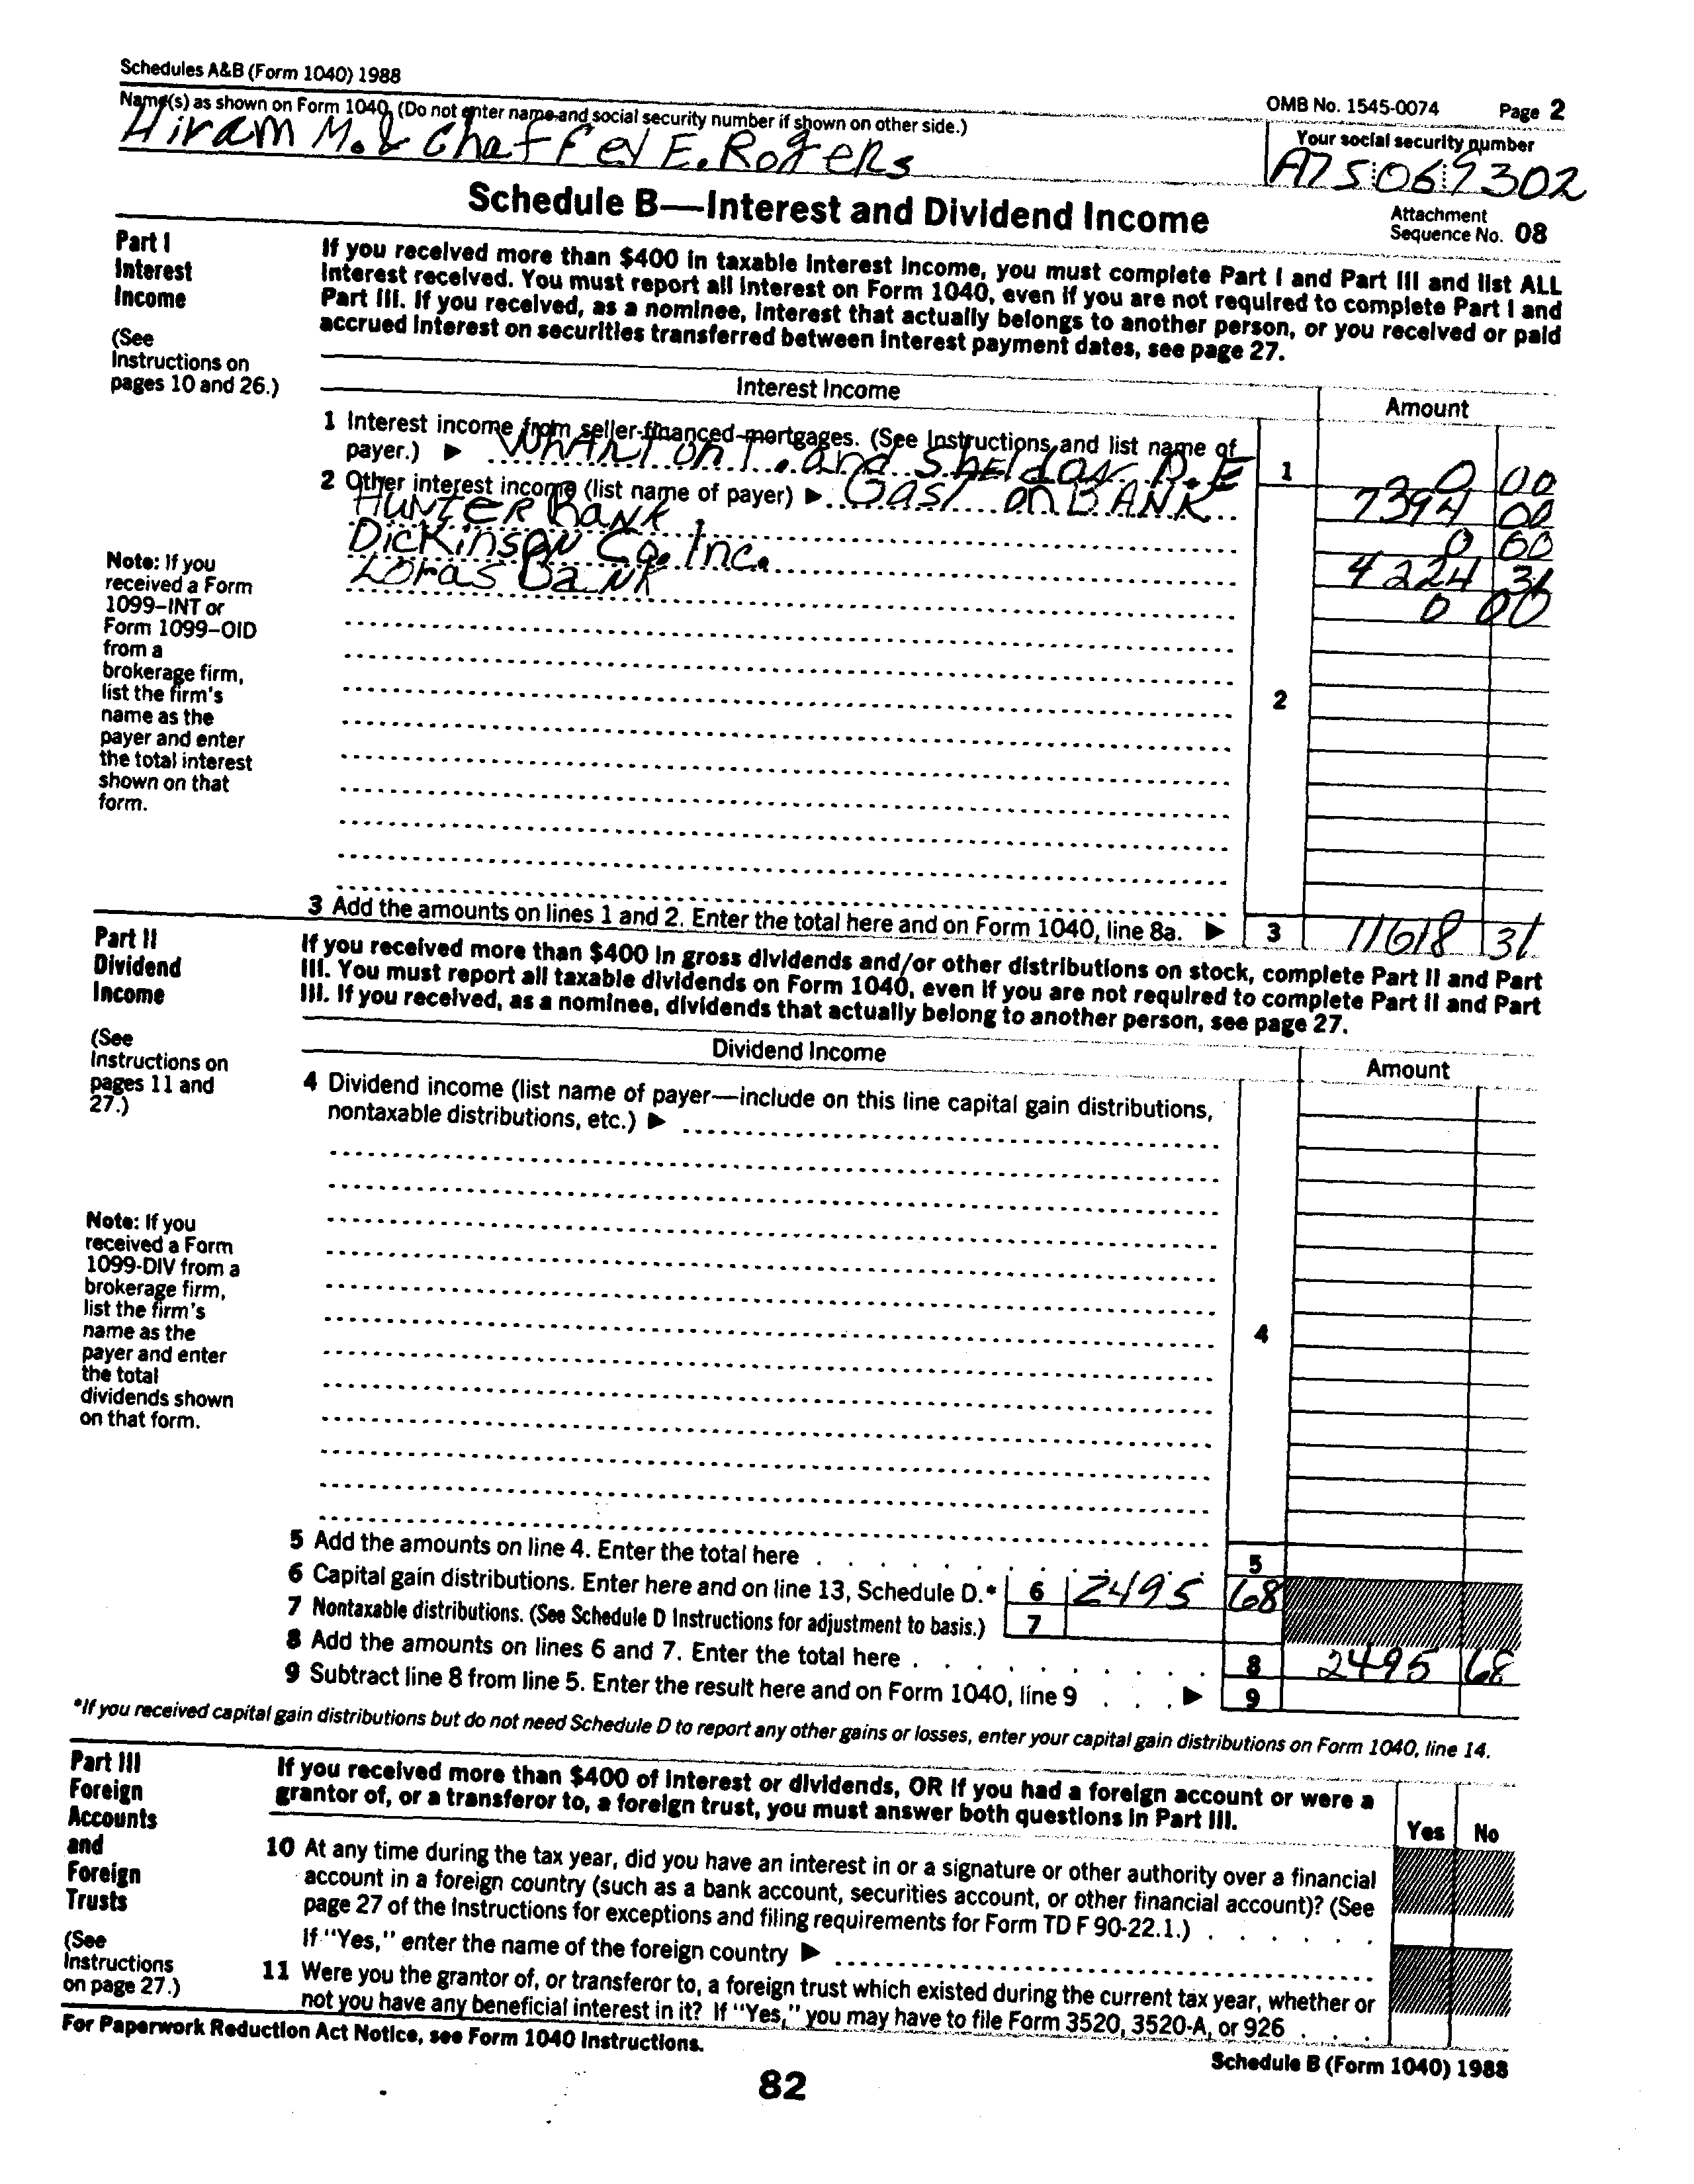 Schedules A&B (Form 1040) 1988
OMB No. 1545-0074 Page 2
Name(s) as shown on Form 1040. (Do not enter name and social security number if shown on other side.)
Your social security number
Hiram M. & E. Rogers
Schedule B—Interest and Dividend Income
Attachment
Sequence No. 08
Part I
Interest
Income
(See
Instructions on
pages 10 and 26.)
If you received more than $400 in taxable interest income, you must complete Part I and Part III and list ALL
interest received. You must report all interest on Form 1040, even if you are not required to complete Part I and
Part III. If you received, as a nominee, interest that actually belongs to another person, or you received or paid
accrued interest on securities transferred between interest payment dates, see page 27.
Interest Income
Amount
1 Interest income from seller-financed mortgages. (See Instructions and list name of
payer.) ▶ and Sheldon D.E 1 0 00
2 Other interest income (list name of payer) ▶ Gast on BANK 7394 00
HUNTER BANK 0 00
Dickinson Co. Inc. 4224 31
Loras Bank 0 00
Note: If you
received a Form
1099–INT or
Form 1099–OID
from a
brokerage firm,
list the firm's
name as the
payer and enter
the total interest
shown on that
form.
2
3 Add the amounts on lines 1 and 2. Enter the total here and on Form 1040, line 8a. ▶ 3 11618 31
Part II
Dividend
Income
(See
Instructions on
pages 11 and
27.)
If you received more than $400 in gross dividends and/or other distributions on stock, complete Part II and Part
III. You must report all taxable dividends on Form 1040, even if you are not required to complete Part II and Part
III. If you received, as a nominee, dividends that actually belong to another person, see page 27.
Dividend Income
Amount
4 Dividend income (list name of payer—include on this line capital gain distributions,
nontaxable distributions, etc.) ▶
Note: If you
received a Form
1099-DIV from a
brokerage firm,
list the firm's
name as the
payer and enter
the total
dividends shown
on that form.
4
5 Add the amounts on line 4. Enter the total here . . . . . . . 5
6 Capital gain distributions. Enter here and on line 13, Schedule D.* 6 2495 68
7 Nontaxable distributions. (See Schedule D Instructions for adjustment to basis.) 7
8 Add the amounts on lines 6 and 7. Enter the total here . . . . . . . . . . 8 2495 68
9 Subtract line 8 from line 5. Enter the result here and on Form 1040, line 9 . . . ▶ 9
*If you received capital gain distributions but do not need Schedule D to report any other gains or losses, enter your capital gain distributions on Form 1040, line 14.
Part III
Foreign
Accounts
and
Foreign
Trusts
(See
Instructions
on page 27.)
If you received more than $400 of interest or dividends, OR if you had a foreign account or were a
grantor of, or a transferor to, a foreign trust, you must answer both questions in Part III.
Yes No
10 At any time during the tax year, did you have an interest in or a signature or other authority over a financial
account in a foreign country (such as a bank account, securities account, or other financial account)? (See
page 27 of the Instructions for exceptions and filing requirements for Form TD F 90-22.1.) . . . . . .
If "Yes," enter the name of the foreign country ▶
11 Were you the grantor of, or transferor to, a foreign trust which existed during the current tax year, whether or
not you have any beneficial interest in it? If "Yes," you may have to file Form 3520, 3520-A, or 926 . . .
For Paperwork Reduction Act Notice, see Form 1040 Instructions.
Schedule B (Form 1040) 1988
82